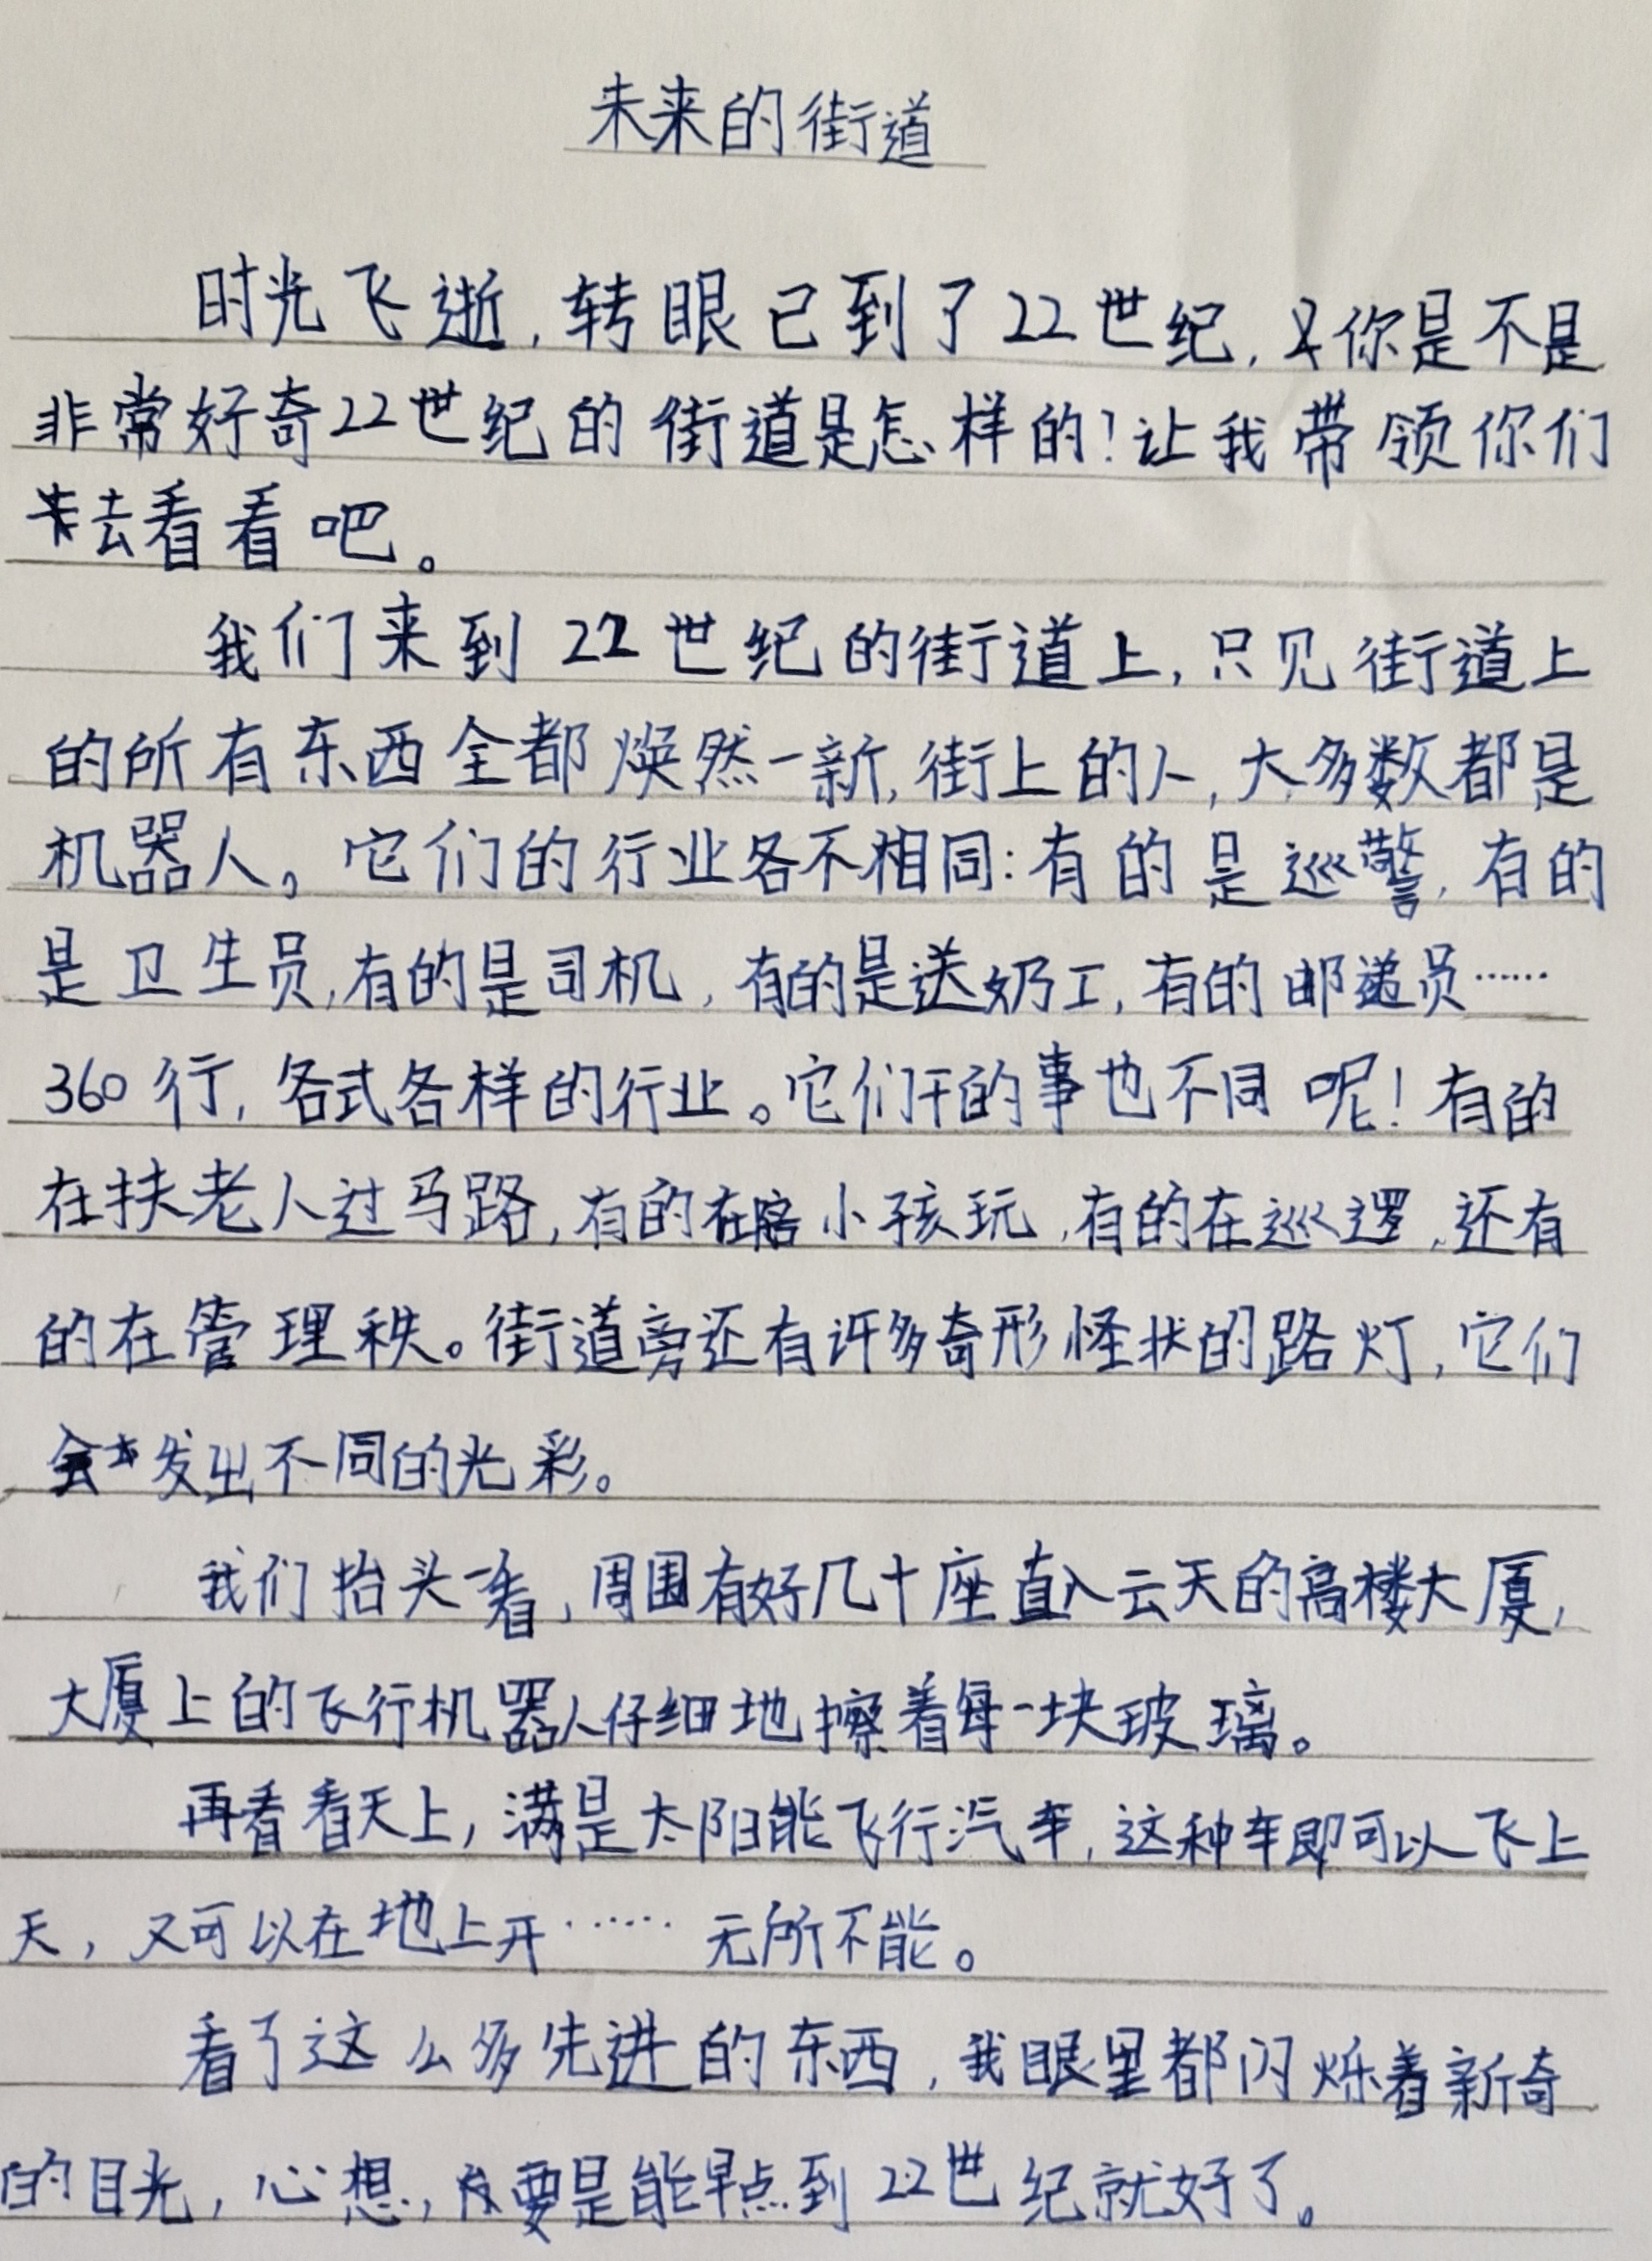 未来的街道
时光飞逝,转眼已到了22世纪,你是不是
非常好奇22世纪的街道是怎样的!让我带领你们
去看看吧。
我们来到22世纪的街道上,只见街道上
的所有东西全都焕然一新,街上的人,大多数都是
机器人。它们的行业各不相同:有的是巡警,有的
是卫生员,有的是司机,有的是送奶工,有的邮递员……
360行,各式各样的行业。它们干的事也不同呢!有的
在扶老人过马路,有的在陪小孩玩,有的在巡逻,还有
的在管理秩。街道旁还有许多奇形怪状的路灯,它们
会发出不同的光彩。
我们抬头一看,周围有好几十座直入云天的高楼大厦,
大厦上的飞行机器人仔细地擦着每一块玻璃。
再看看天上,满是太阳能飞行汽车,这种车即可以飞上
天,又可以在地上开……无所不能。
看了这么多先进的东西,我眼里都闪烁着新奇
的目光,心想,要是能早点到22世纪就好了。